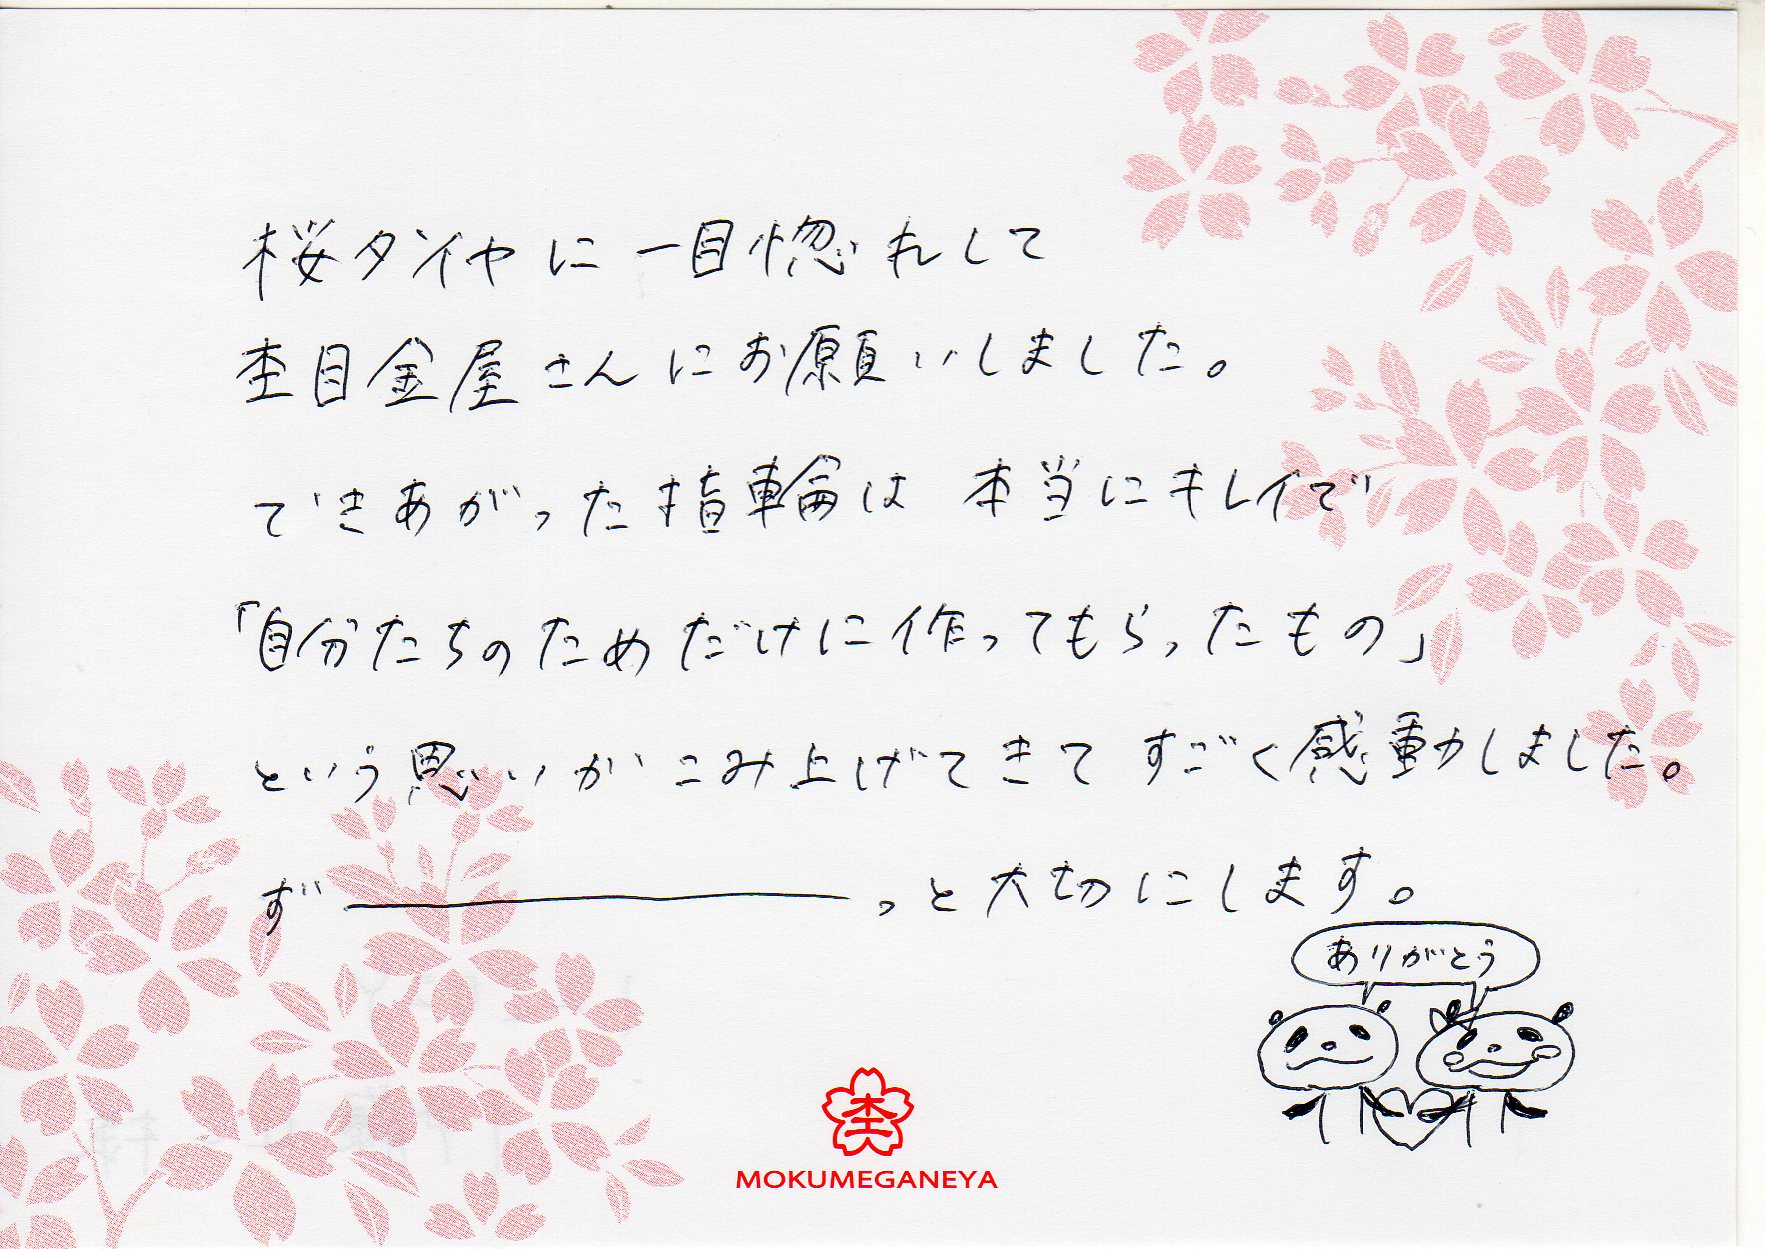 桜ダイヤに一目惚れして
杢目金屋さんにお願いしました。
できあがった指輪は 本当にキレイで
「自分たちのためだけに作ってもらったもの」
という思いがこみ上げてきて すごく感動しました。
ず――――――っと大切にします。
ありがとう
杢
MOKUMEGANEYA